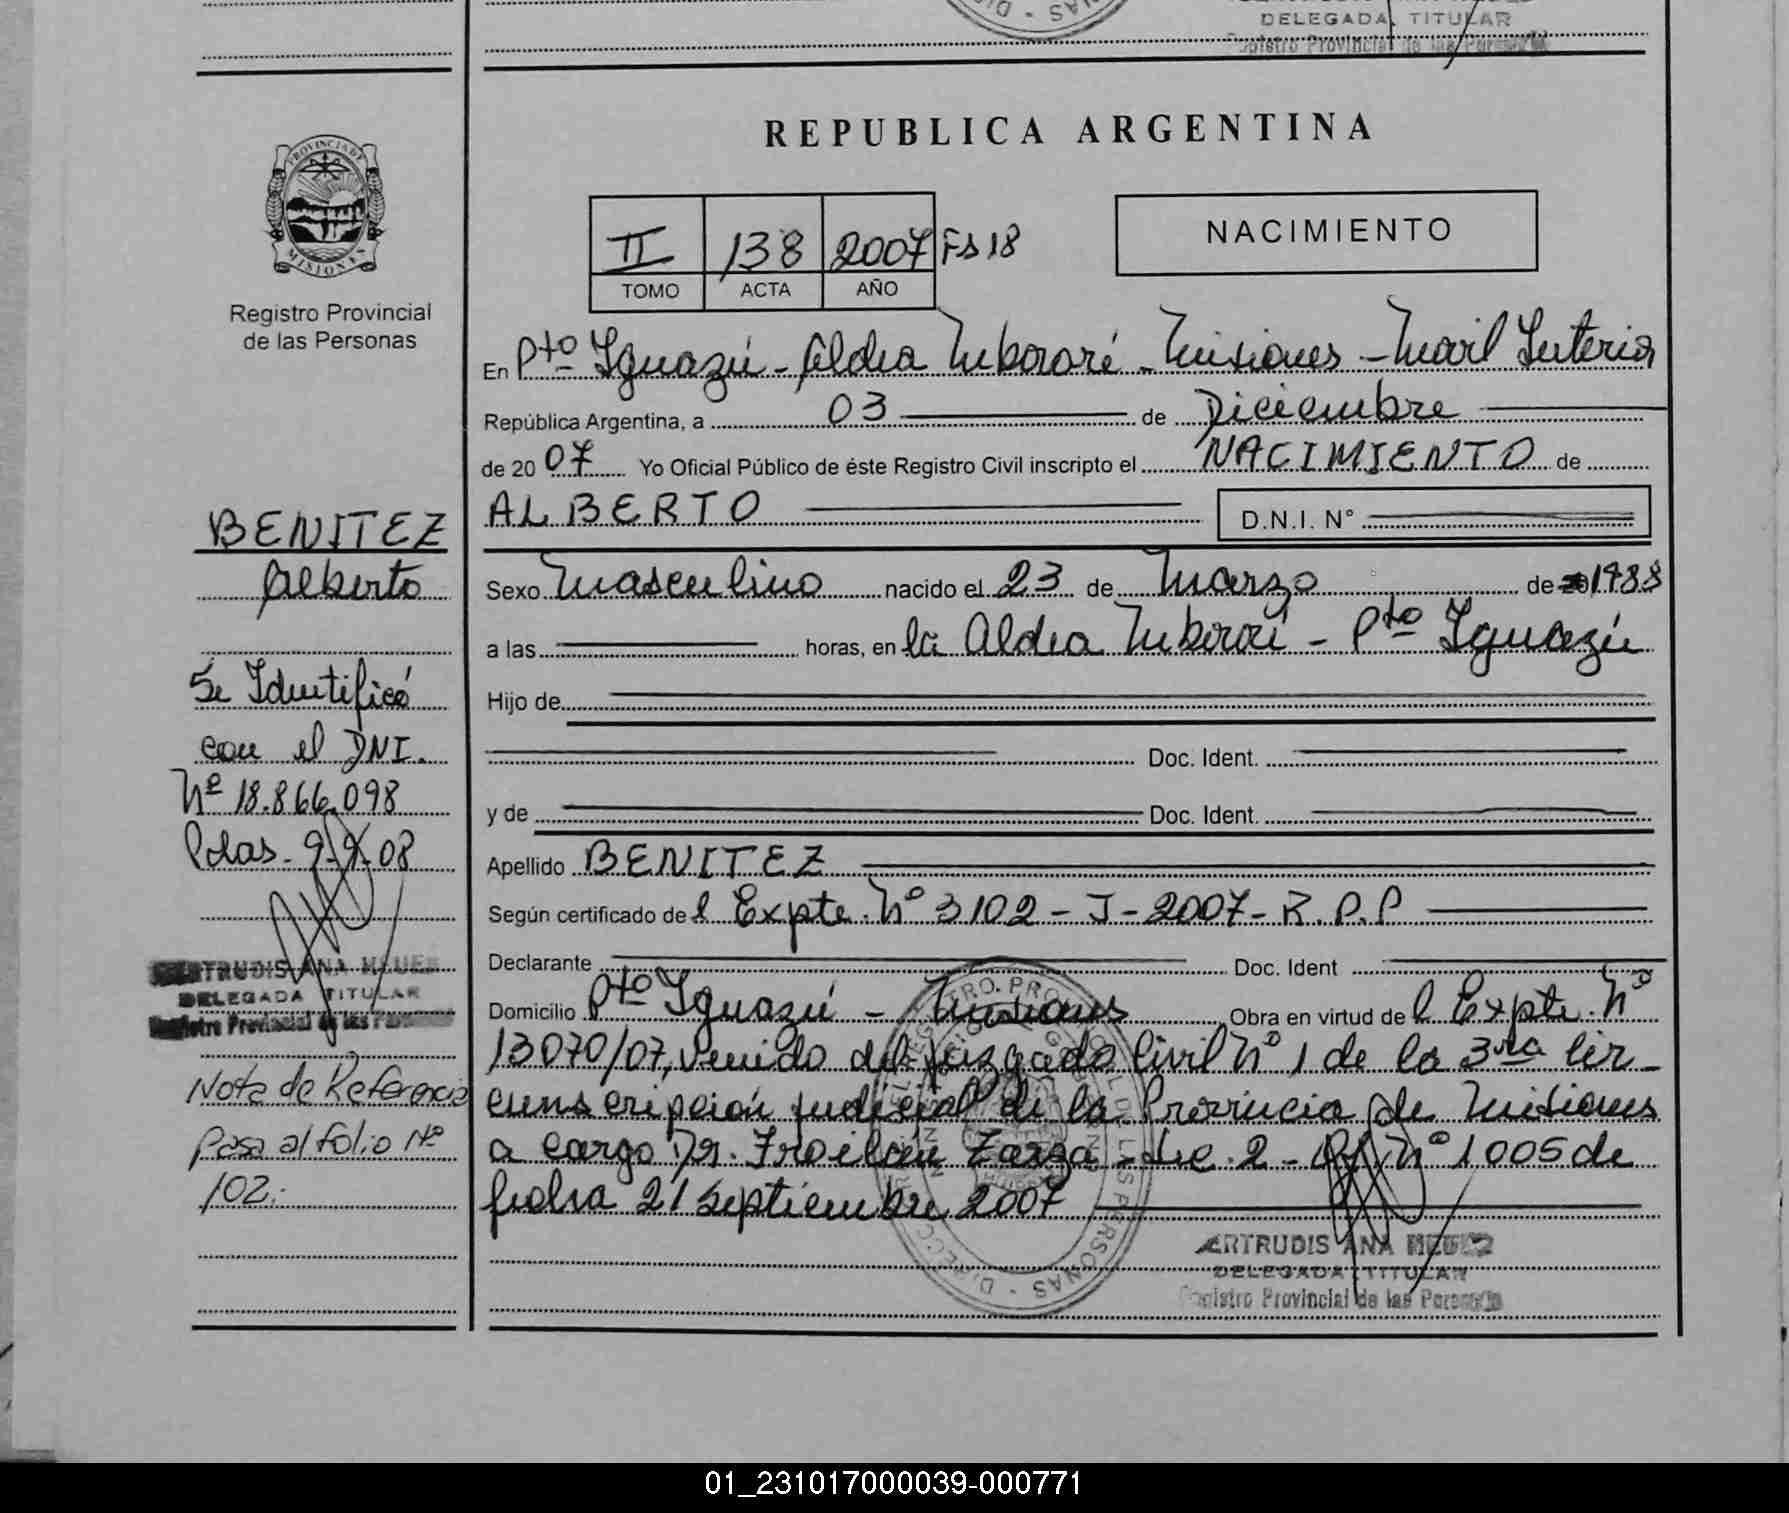 DELEGADA TITULAR
Registro Provincial de las Personas
PROVINCIA DE
MISIONES
Registro Provincial
de las Personas
BENITEZ
Alberto
Se Identificó
con el DNI.
Nº 18.866.098
Pdas. 9-9-08
GERTRUDIS ANA
DELEGADA TITULAR
Registro Provincial de las Personas
Nota de Referencia
Pasa al folio Nº
102.
REPUBLICA ARGENTINA
II 138 2007 Fs 18
TOMO ACTA AÑO
NACIMIENTO
En Pto Iguazú - Aldea Mbororé - Misiones - Movil Interior
República Argentina, a 03 de Diciembre
de 20 07 Yo Oficial Público de éste Registro Civil inscripto el NACIMIENTO de
ALBERTO D.N.I. N°
Sexo Masculino nacido el 23 de Marzo de 20 1988
a las horas, en la Aldea Mbororé - Pto Iguazú
Hijo de
Doc. Ident.
y de Doc. Ident.
Apellido BENITEZ
Según certificado de l Expte. Nº 3102 - J - 2007 - R.P.P
Declarante Doc. Ident
Domicilio Pto Iguazú - Misiones Obra en virtud de l Expte. Nº
13070/07, venido del Juzgado Civil Nº 1 de la 3ra Cir-
cunscripción judicial de la Provincia de Misiones
a cargo Dr. Froilán Zarza - Sec. 2 - Of Nº 1005 de
fecha 21 Septiembre 2007
GERTRUDIS ANA
DELEGADA TITULAR
Registro Provincial de las Personas
01_231017000039-000771